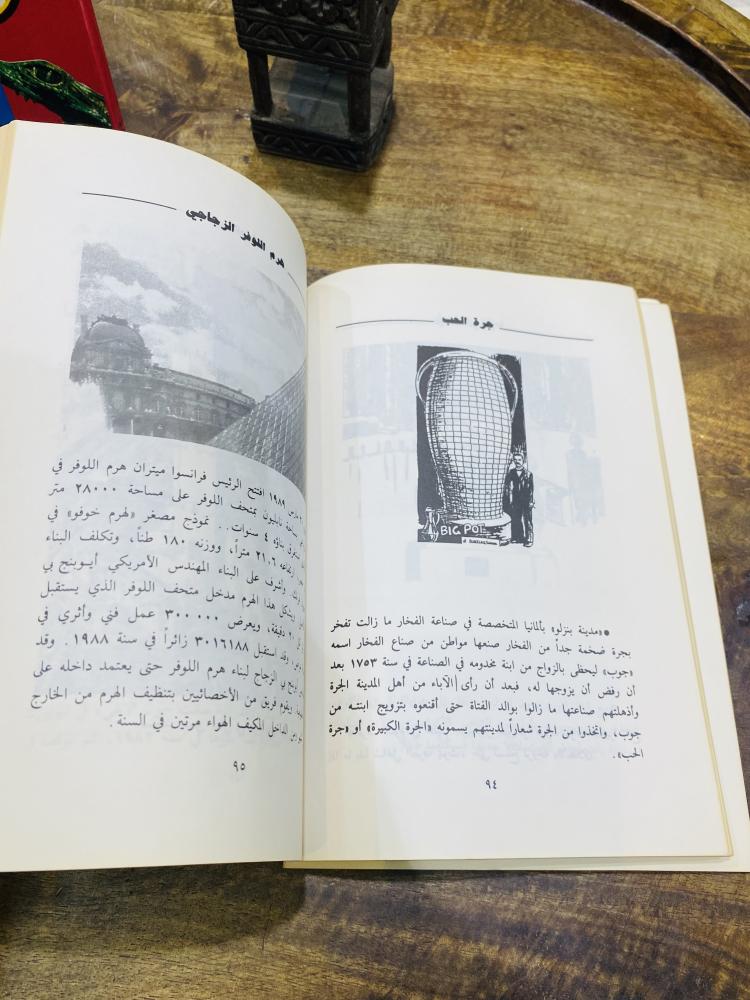 جرة الحب
BIG POT
●«مدينة بنزلو» بألمانيا المتخصصة في صناعة الفخار ما زالت تفخر
بجرة ضخمة جداً من الفخار صنعها مواطن من صناع الفخار اسمه
«جوب» ليحظى بالزواج من ابنة مخدومه في الصناعة في سنة ١٧٥٣ بعد
أن رفض أن يزوجها له، فبعد أن رأى الآباء من أهل المدينة الجرة
وأذهلتهم صناعتها ما زالوا بوالد الفتاة حتى أقنعوه بتزويج ابنته من
جوب، واتخذوا من الجرة شعاراً لمدينتهم يسمونه «الجرة الكبيرة» أو «جرة
الحب».
٩٤
هرم اللوفر الزجاجي
مارس ١٩٨٩ افتتح الرئيس فرانسوا ميتران هرم اللوفر في
نابليون بمتحف اللوفر على مساحة ٢٨٠٠٠ متر
بناؤه ٤ سنوات.. نموذج مصغر «لهرم خوفو» في
٢١,٦ متراً، ووزنه ١٨٠ طناً، وتكلف البناء
وأشرف على البناء المهندس الأمريكي أيوبنج بي
هذا الهرم مدخل متحف اللوفر الذي يستقبل
٢٠ دقيقة، ويعرض ٣٠٠٠٠٠ عمل فني وأثري في
وقد استقبل ٣٠١٦١٨٨ زائراً في سنة ١٩٨٨. وقد
بي الزجاج لبناء هرم اللوفر حتى يعتمد داخله على
ويقوم فريق من الأخصائيين بتنظيف الهرم من الخارج
الداخل المكيف الهواء مرتين في السنة.
٩٥